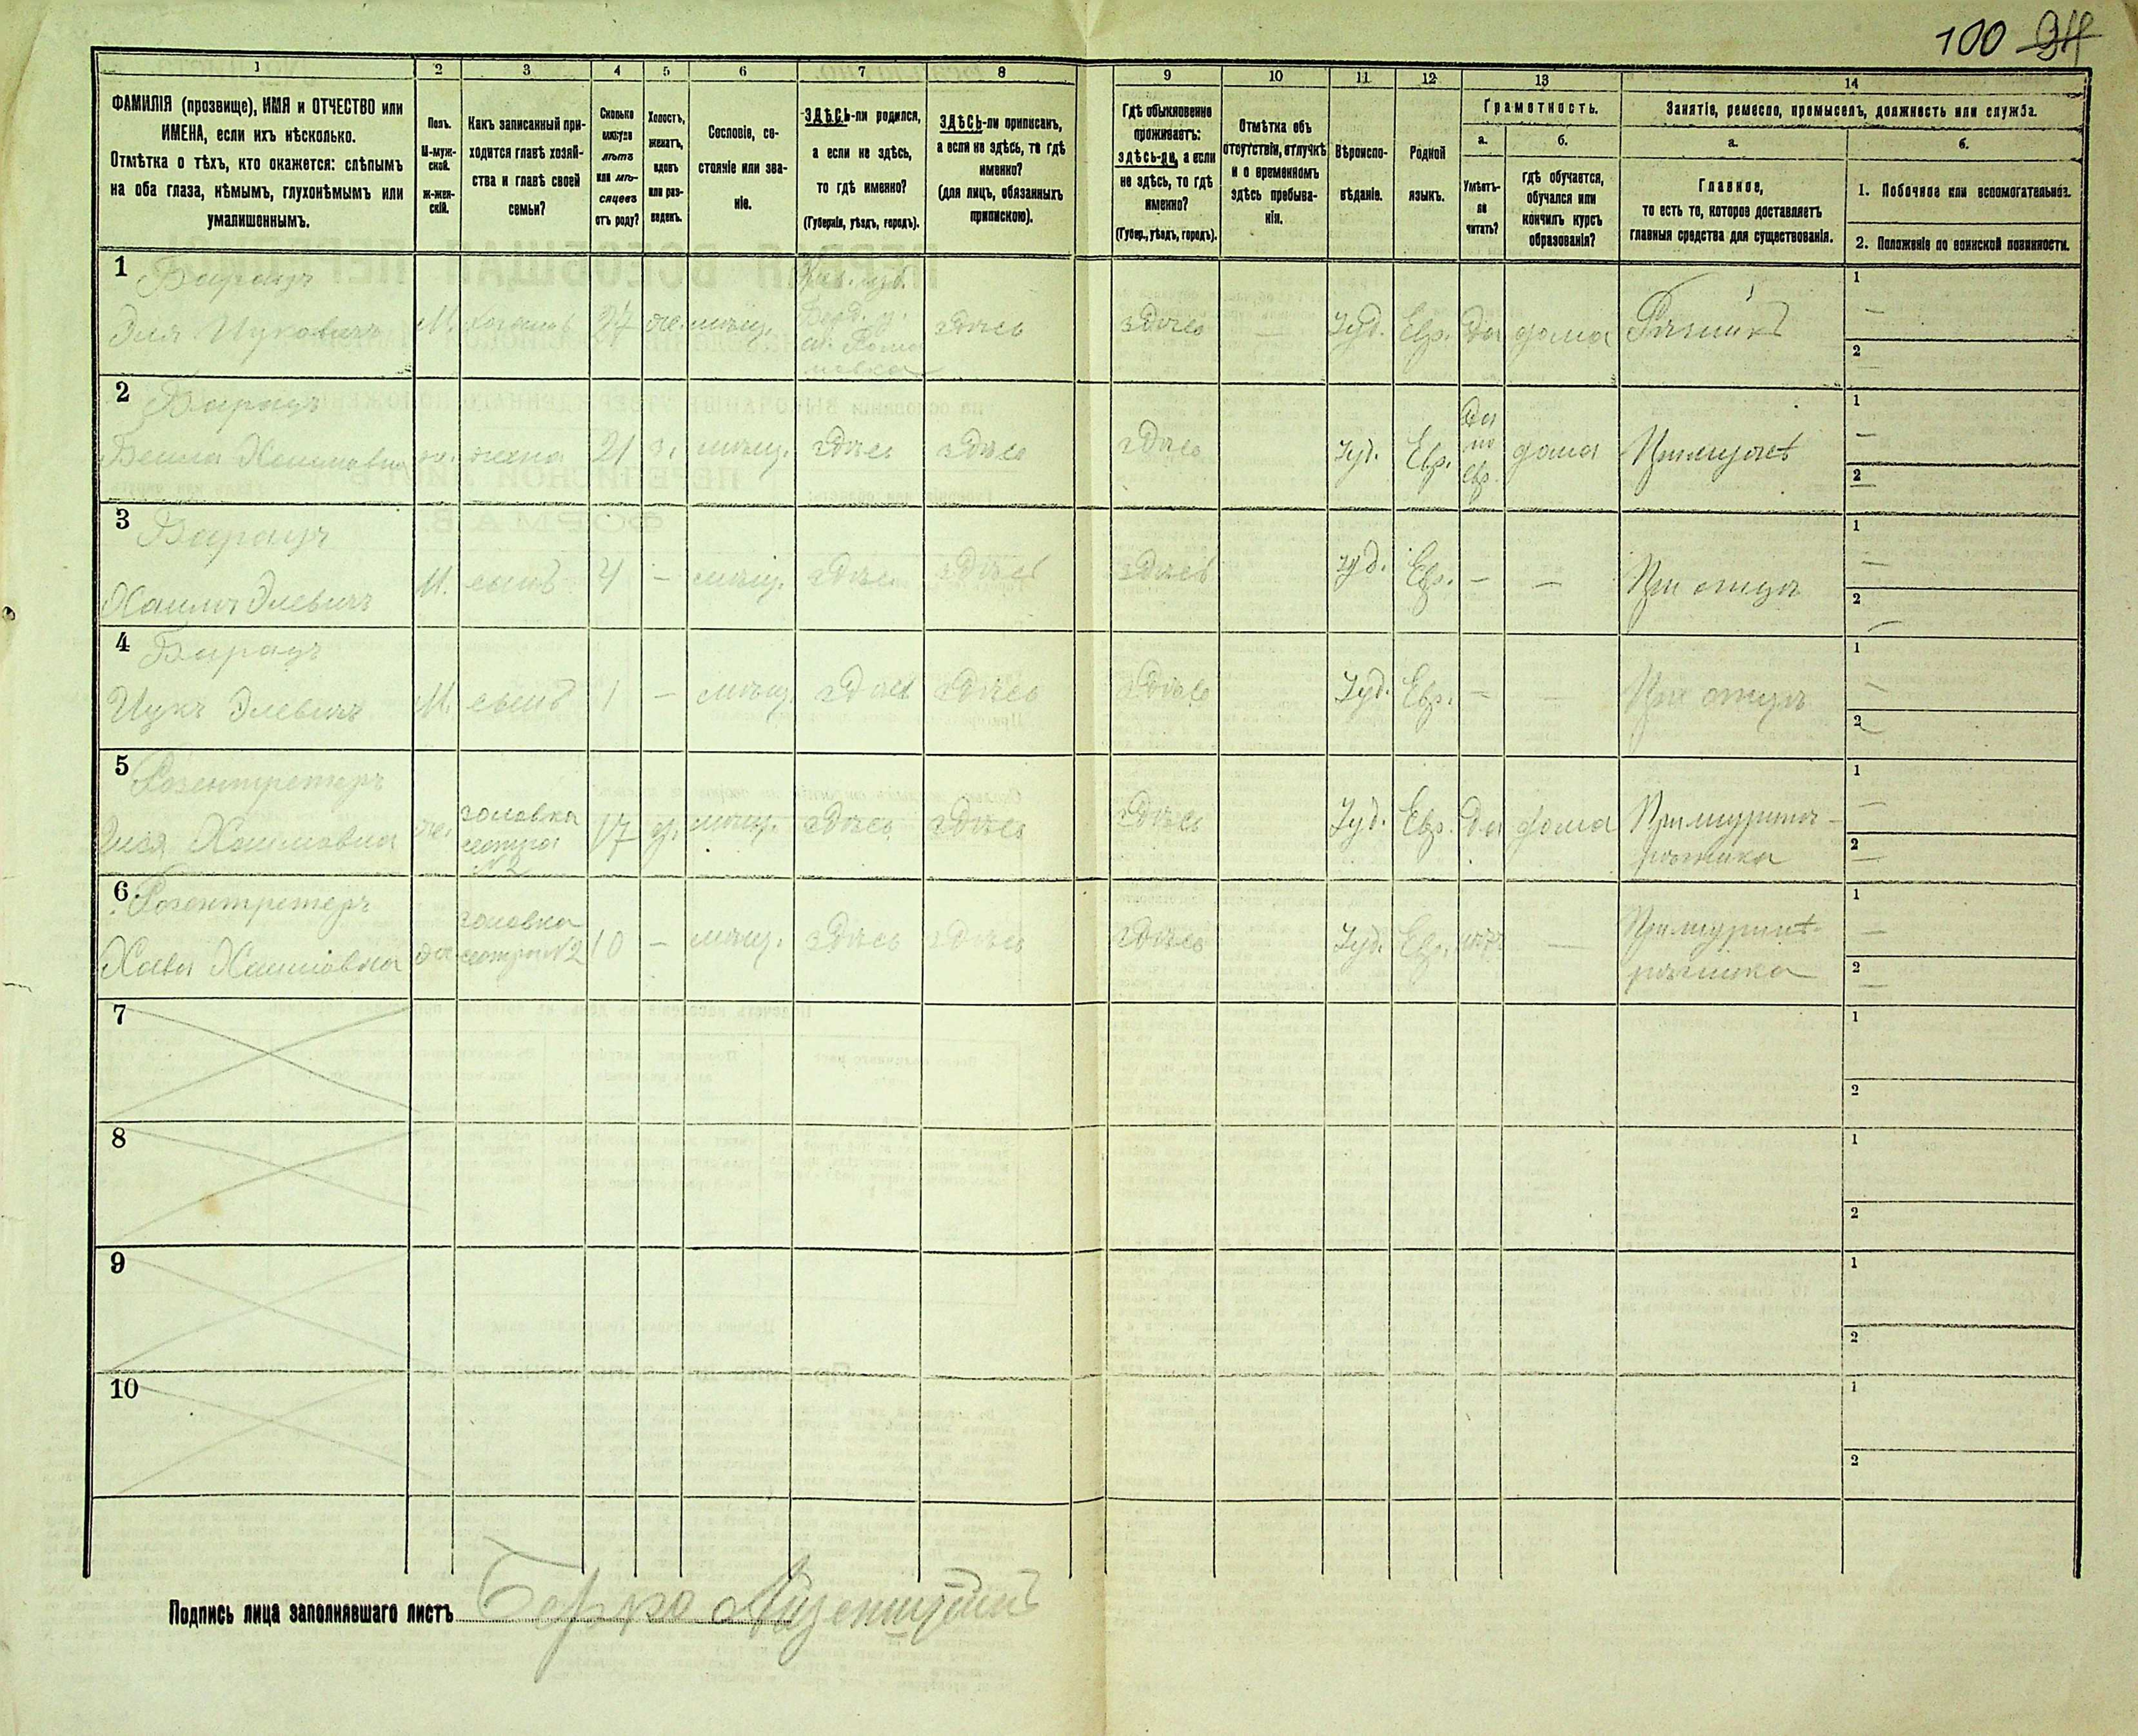 100 94
1 2 3 4 5 6 7 8 9 10 11 12 13 14
ФАМИЛІЯ (прозвище), ИМЯ и ОТЧЕСТВО или
ИМЕНА, если ихъ нѣсколько.
Отмѣтка о тѣхъ, кто окажется: слѣпымъ
на оба глаза, нѣмымъ, глухонѣмымъ или
умалишеннымъ.
Полъ.
М-муж-
ской.
ж-жен-
скій.
Какъ записанный при-
ходится главѣ хозяй-
ства и главѣ своей
семьи?
Сколько
минуло
лѣтъ
или мѣ-
сяцевъ
отъ роду?
Холостъ,
женатъ,
вдовъ
или раз-
веденъ.
Сословіе, со-
стояніе или зва-
ніе.
ЗДѢСЬ-ли родился,
а если не здѣсь,
то гдѣ именно?
(Губернія, уѣздъ, городъ).
ЗДѢСЬ-ли приписанъ,
а если не здѣсь, то гдѣ
именно?
(для лицъ, обязанныхъ
припискою).
Гдѣ обыкновенно
проживаетъ:
здѣсь-ли, а если
не здѣсь, то гдѣ
именно?
(Губер., уѣздъ, городъ).
Отмѣтка объ
отсутствіи, отлучкѣ
и о временномъ
здѣсь пребыва-
ніи.
Вѣроиспо-
вѣданіе.
Родной
языкъ.
Грамотность.
а.
Умѣетъ-
ли
читать?
б.
гдѣ обучается,
обучался или
кончилъ курсъ
образованія?
Занятіе, ремесло, промыселъ, должность или служба.
а.
Главное,
то есть то, которое доставляетъ
главныя средства для существованія.
б.
1. Побочное или вспомогательное.
2. Положеніе по воинской повинности.
1 Барацъ
Эля Ицковичъ М. хозяинъ 24 же. мѣщ. здѣсь здѣсь — Іуд. Евр. Да дома Рѣзникъ
1 —
2 —
2 Барацъ
Бейла Хаимовна ж. жена 21 з. мѣщ. здѣсь здѣсь здѣсь Іуд. Евр. Да по Евр. дома При мужѣ
1 —
2 —
3 Барацъ
Хаимъ Элевичъ М. сынъ 4 — мѣщ. здѣсь здѣсь здѣсь Іуд. Евр. — — При отцѣ
1 —
2 —
4 Барацъ
Ицкъ Элевичъ М. сынъ 1 — мѣщ. здѣсь здѣсь здѣсь Іуд. Евр. — — При отцѣ
1 —
2 —
5 Розентретеръ
Хаимовна же. золовка сестра №2 17 д. мѣщ. здѣсь здѣсь здѣсь Іуд. Евр. Да дома При шуринѣ
рѣзника
1 —
2 —
6 Розентретеръ
Хава Хаимовна золовка сестра №2 10 — мѣщ. здѣсь здѣсь здѣсь Іуд. Евр. нѣтъ — При шуринѣ
рѣзника
1 —
2 —
7 1
2
8 1
2
9 1
2
10 1
2
Подпись лица заполнявшаго листъ